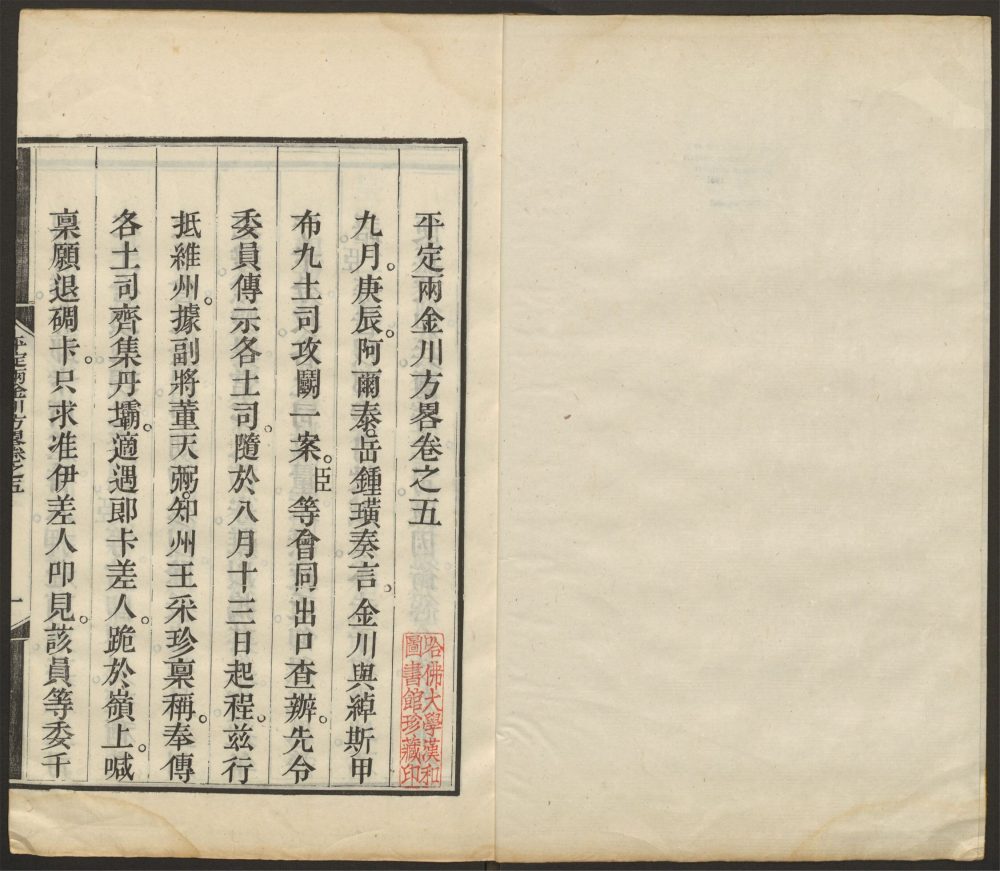 平定兩金川方畧卷之五
九月。庚辰。阿爾泰。岳鍾璜奏言。金川與綽斯甲
布九土司攻鬭一案。臣等會同出口查辦。先令
委員傳示各土司。隨於八月十三日起程。茲行
抵維州。據副將董天弼。知州王采珍稟稱。奉傳
各土司齊集丹壩。適遇郎卡差人。跪於嶺上。喊
稟願退碉卡。只求准伊差人叩見。該員等委千
平定兩金川方畧卷之五
一
哈佛大學漢和
圖書館珍藏印